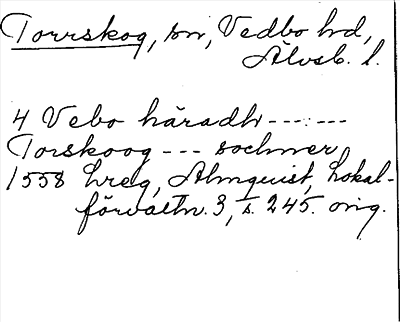 Torrskog, sn, Vedbo hd,
Älvsb. l.
4 Vebo häradh --- ---
Torskoog --- sochner
1558 hreg, Almquist, Lokal-
förvaltn. 3, s. 245. orig.